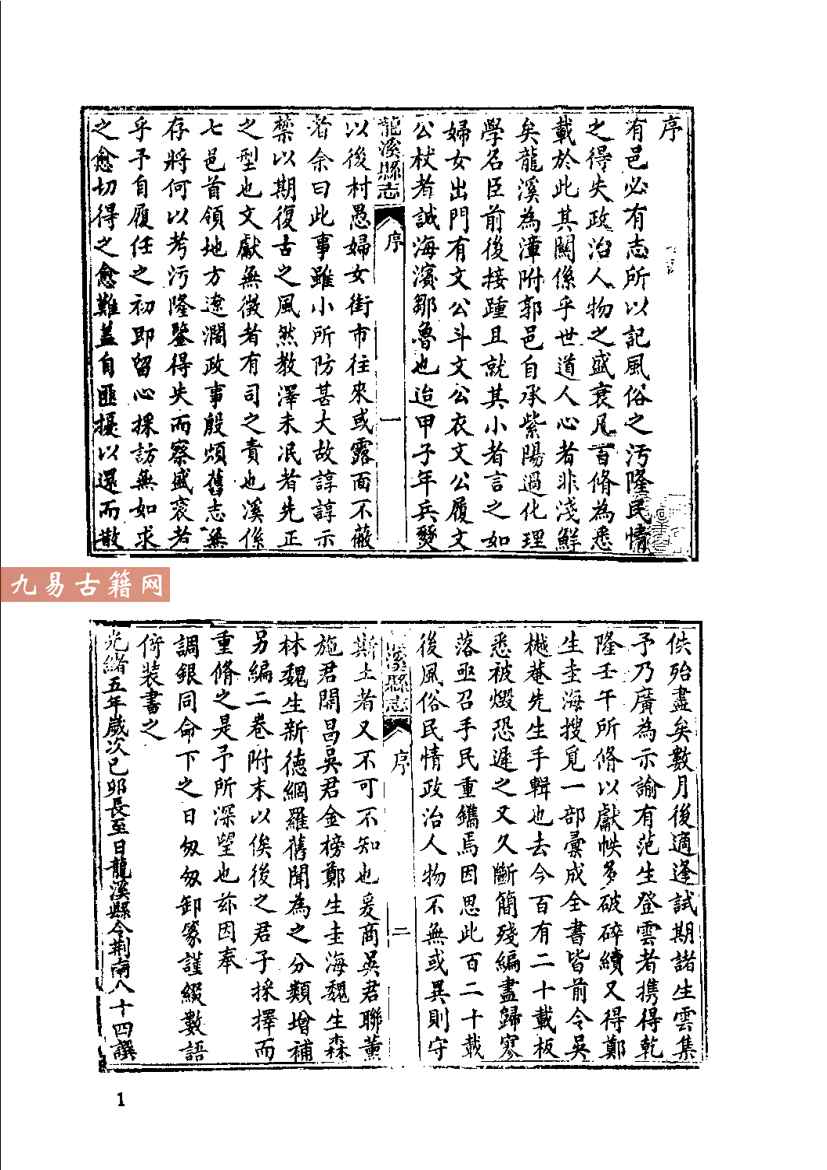 序
有邑必有志所以記風俗之汚隆民情
之得失政治人物之盛衰凡一百脩為悉
載於此其關係乎世道人心者非淺鮮
矣龍溪為漳附郭邑自承紫陽過化理
學名臣前後接踵且就其小者言之如
婦女出門有文公斗文公衣文公履文
公杖者誠海濱鄒魯也迨甲子年兵燹
龍溪縣志 序 一
以後村愚婦女街市往來或露面不蔽
者余曰此事雖小所防甚大故諄諄示
禁以期復古之風然教澤未泯者先正
之型也文獻無徵者有司之責也溪係
七邑首領地方遼濶政事殷煩舊志無
存將何以考汚隆鑒得失而察盛衰若
乎予自履任之初即留心採訪無如求
之愈切得之愈難蓋自匪擾以還而散
佚殆盡矣數月後適逢試期諸生雲集
予乃廣為示諭有范生登雲者携得乾
隆壬午所脩以獻帙多破碎續又得鄭
生圭海搜覓一部彙成全書皆前令吳
樾菴先生手輯也去今百有二十載板
悉被燬恐遲之又久斷簡殘編盡歸寥
落亟召手民重鐫焉因思此百二十載
後風俗民情政治人物不無或異則守
溪縣志 序 二
斯土者又不可不知也爰商吳君聯薰
施君開昌吳君金榜鄭生圭海魏生森
林魏生新德網羅舊聞為之分類增補
另編二卷附末以俟後之君子採擇而
重脩之是予所深望也茲因奉
調銀同命下之日匆匆卸篆謹綴數語
倚装書之
光緒五年歲次己卯長至日龍溪縣令荆南八十四譔
九易古籍网
1